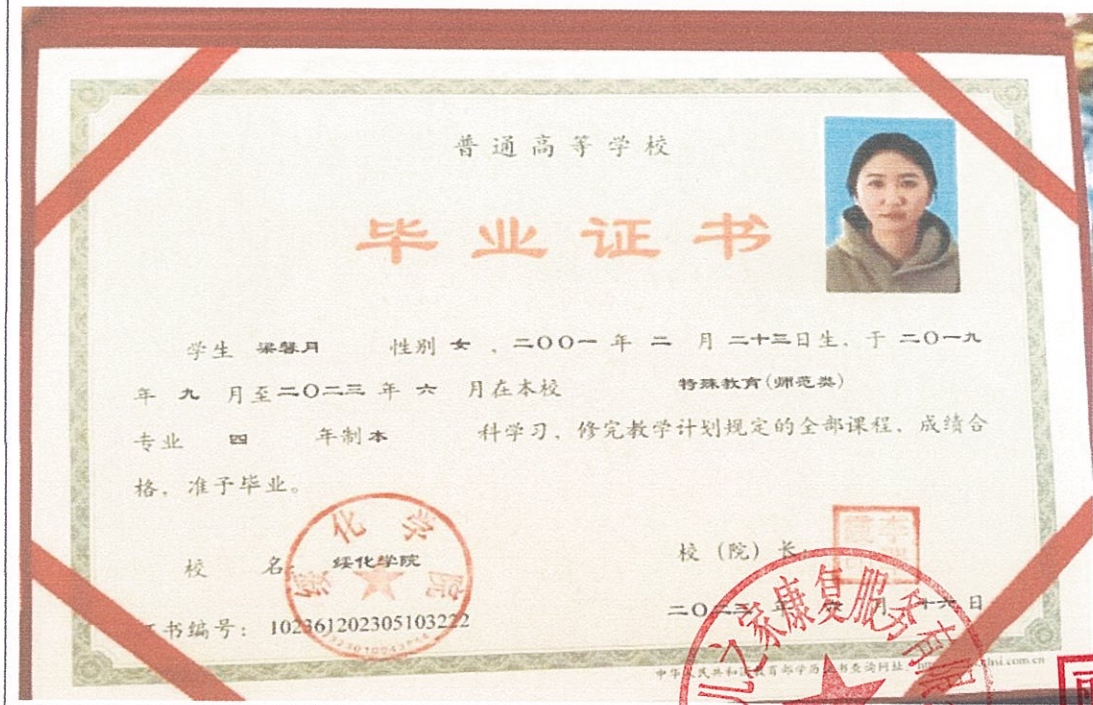 普通高等学校
毕业证书
学生 梁馨月 性别 女 、二〇〇一 年 二 月 二十三日生、于 二〇一九
年 九 月至二〇二三 年 六 月在本校 特殊教育(师范类)
专业 四 年制本 科学习、修完教学计划规定的全部课程、成绩合
格、准予毕业。
校 名: 绥化学院
绥化学院
校（院）长:
书编号: 102361202305103222
二〇二三 年 六 月 十六日
中华人民共和国教育部学历证书查询网址
儿之家康复服务有限